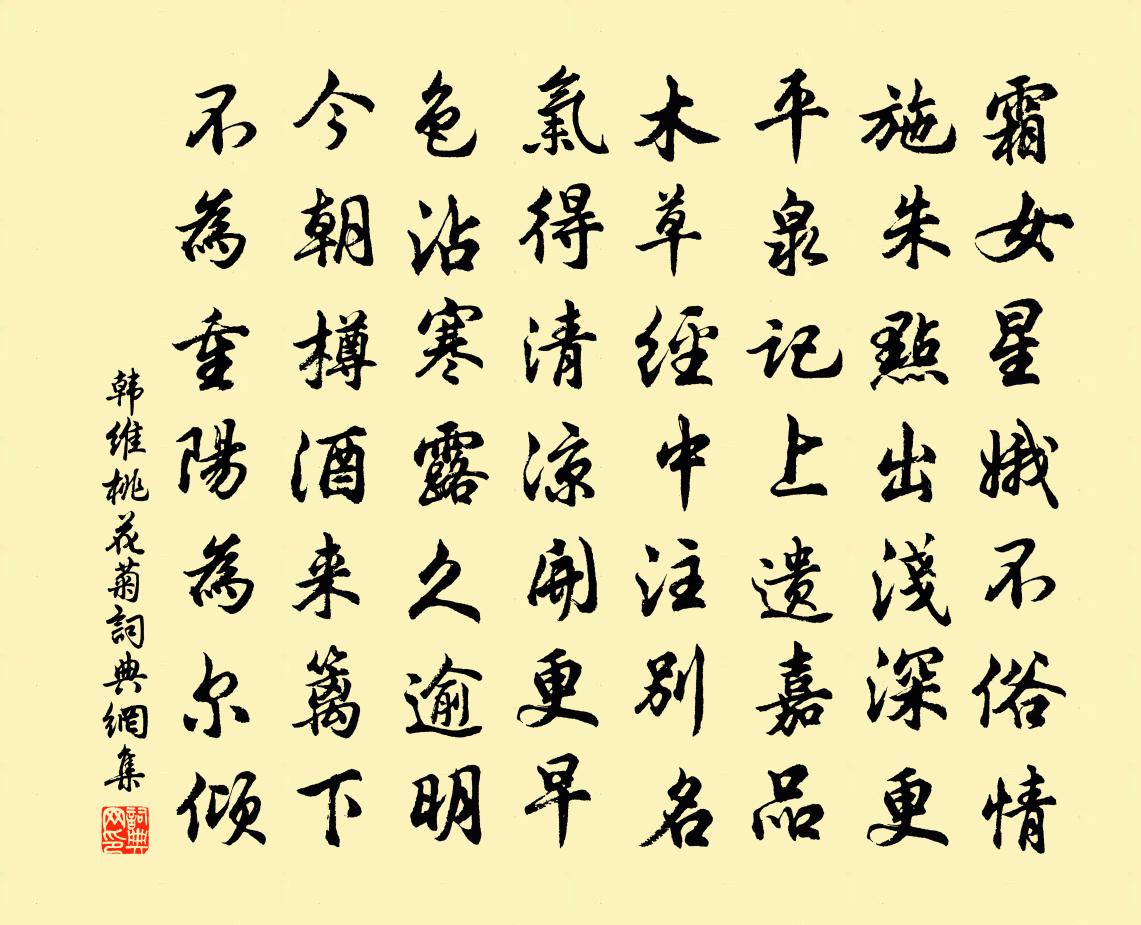 霜女星娥不俗情
施朱點出淺深更
平泉記上遗嘉品
木草經中注別名
氣得清凉開更早
色沾寒露久逾明
今朝樽酒来篱下
不為重陽為尔傾
韩維桃花菊詞典網集
詞典
网印